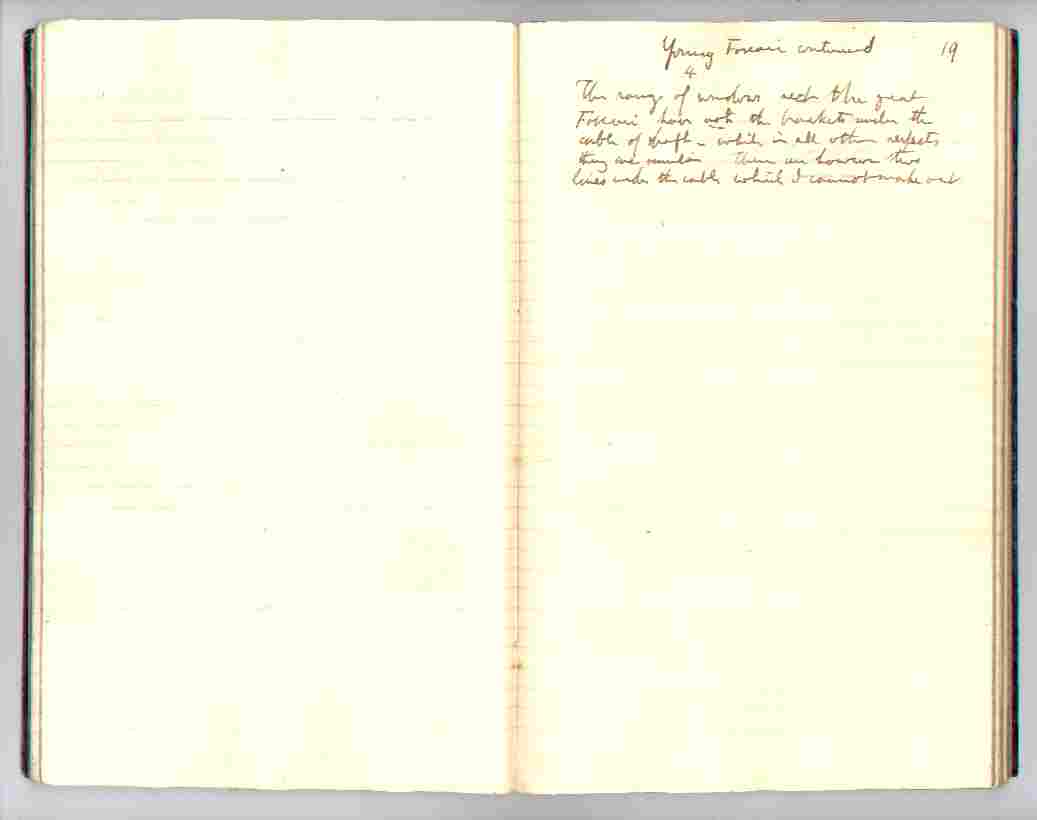 Young Foscari continued 19
4
The range of windows next the great
Foscari have not the brackets under the
cable of shaft - while in all other respects
they are similar There are however two
lines under the cable which I cannot make out